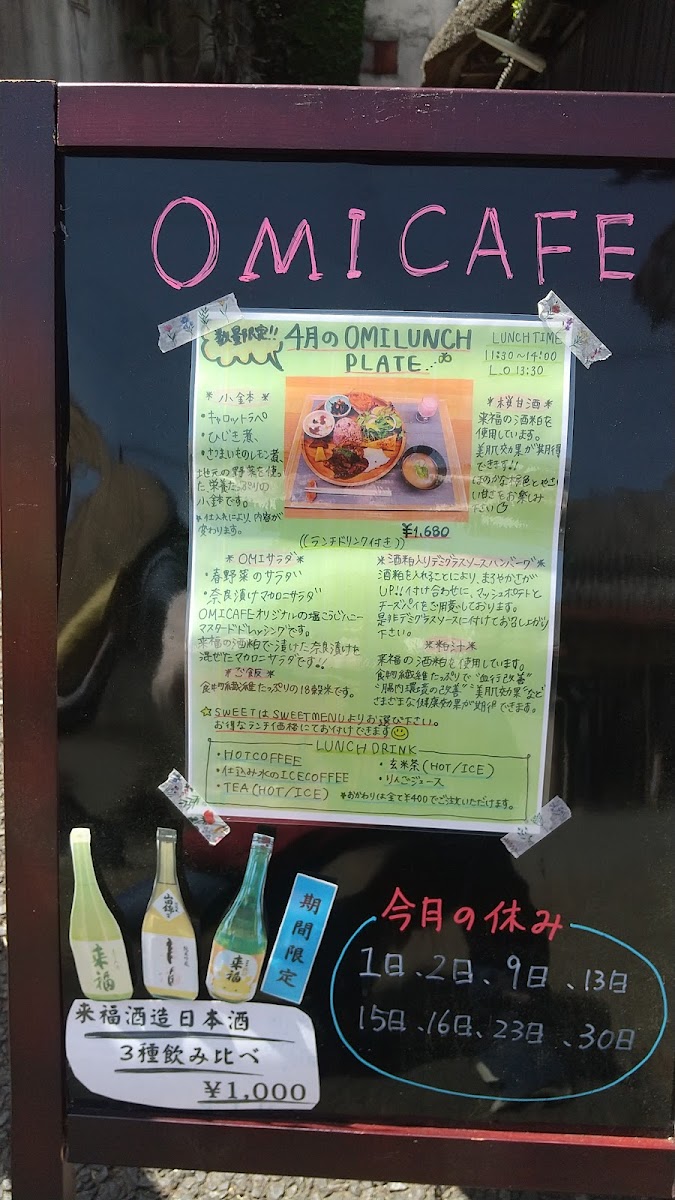 OMI CAFE
数量限定!!
4月の OMILUNCH
PLATE
LUNCH TIME
11:30~14:00
L.O 13:30
*小鉢*
・キャロットラペ
・ひじき煮
・さつまいものレモン煮
地元の野菜を使っ
た栄養たっぷりの
小鉢です。
*仕入れにより、内容が
変わります。
*桜甘酒*
来福の酒粕を
使用しています。
美肌効果が期待
できます!!
ほのかな桜色とやさしい
甘さをお楽しみ
下さい
¥1,680
((ランチドリンク付き))
*OMIサラダ*
・春野菜のサラダ
・奈良漬けマカロニサラダ
OMICAFEオリジナルの塩こうじハニー
マスタードドレッシングです。
来福の酒粕で漬けた奈良漬けを
混ぜたマカロニサラダです!!
*ご飯*
食物繊維たっぷりの18穀米です。
*酒粕入りデミグラスソースハンバーグ*
酒粕を入れることにより、まろやかさが
UP!!付け合わせに、マッシュポテトと
チーズパイをご用意しております。
是非デミグラスソースに付けてお召し上がり
下さい。
*粕汁*
来福の酒粕を使用しています。
食物繊維たっぷりで"血行改善"
"腸内環境の改善""美肌効果"など
さまざまな健康効果が期待できます。
☆SWEETはSWEETMENUよりお選び下さい。
お得なランチ価格にてお付けできます
LUNCH DRINK
・HOTCOFFEE
・仕込み水のICECOFFEE
・TEA(HOT/ICE)
・玄米茶(HOT/ICE)
・りんごジュース
*おかわりは全て¥400でご注文いただけます。
来福
来福
期間限定
来福酒造日本酒
3種飲み比べ
¥1,000
今月の休み
1日、2日、9日、13日
15日、16日、23日、30日